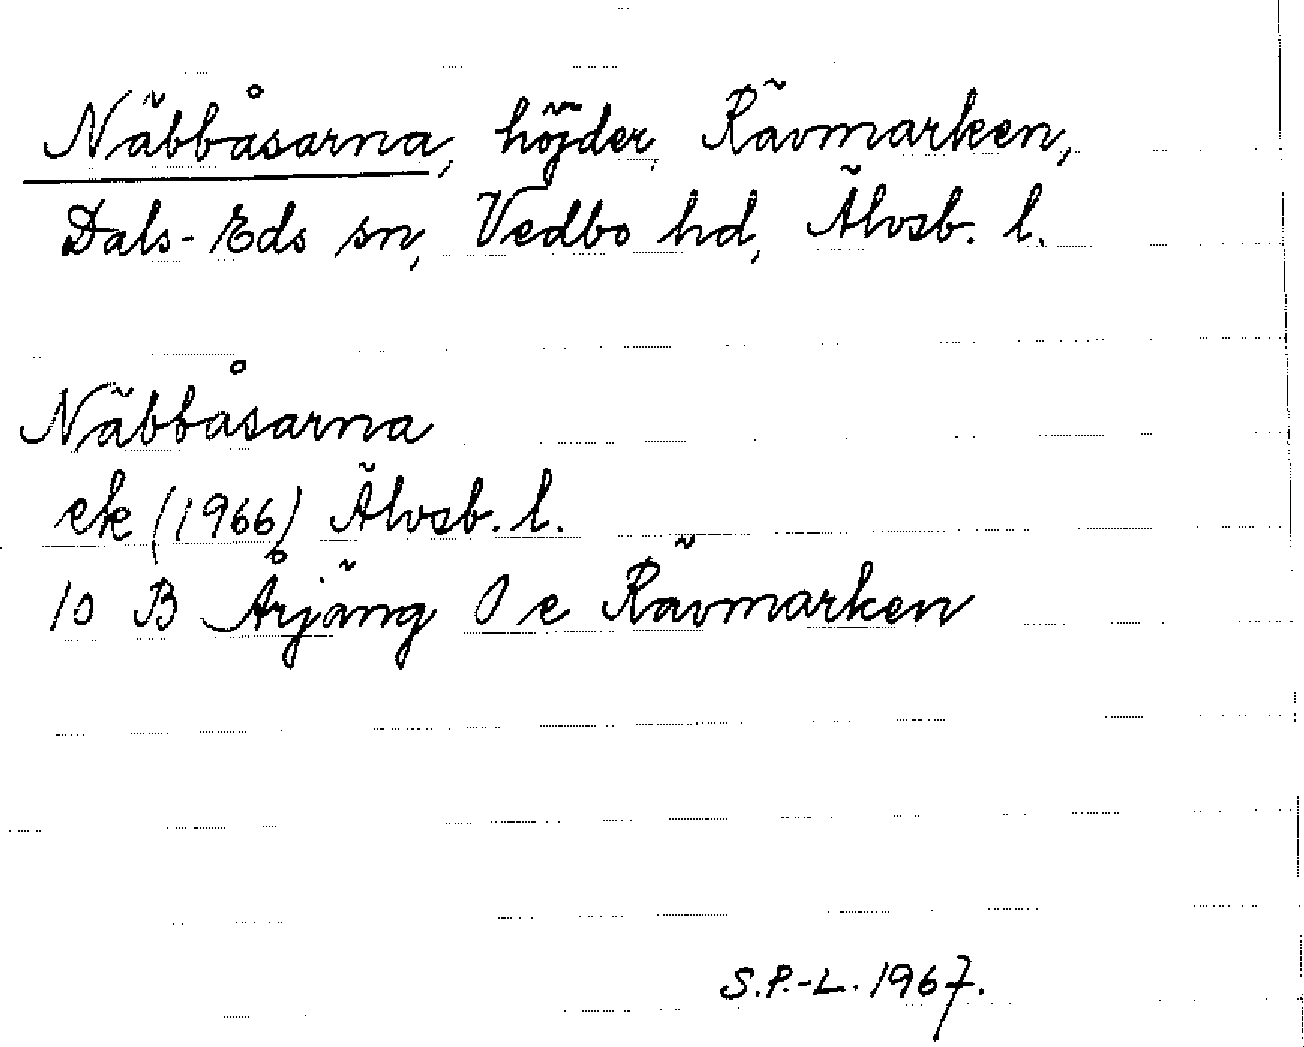 Näbbåsarna, höjder, Rävmarken,
Dals-Eds sn, Vedbo hd, Älvsb. l.
Näbbåsarna
ek (1966) Älvsb. l.
10 B Årjäng 0 e Rävmarken
S.P.-L. 1967.